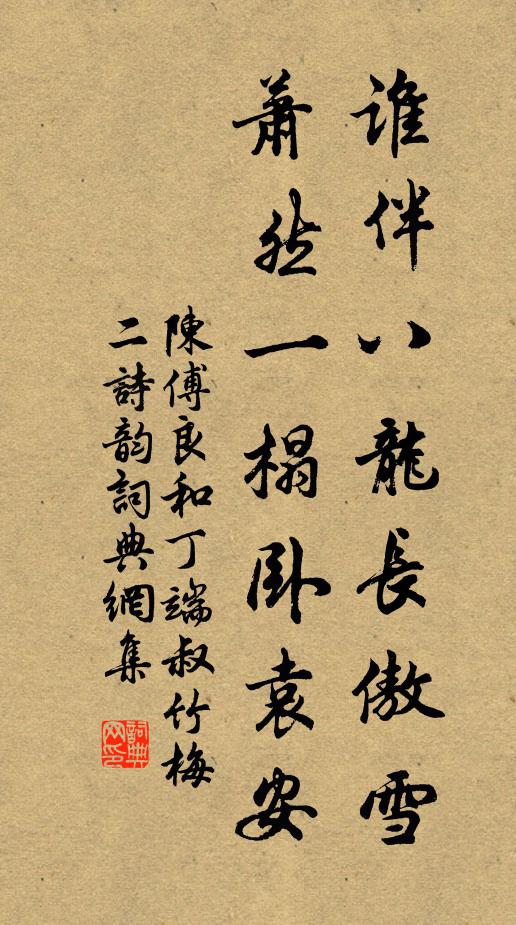 誰伴八龍長傲雪
蕭然一榻卧袁安
陳傅良和丁端叔竹梅
二詩韵詞典網集
詞典
网印